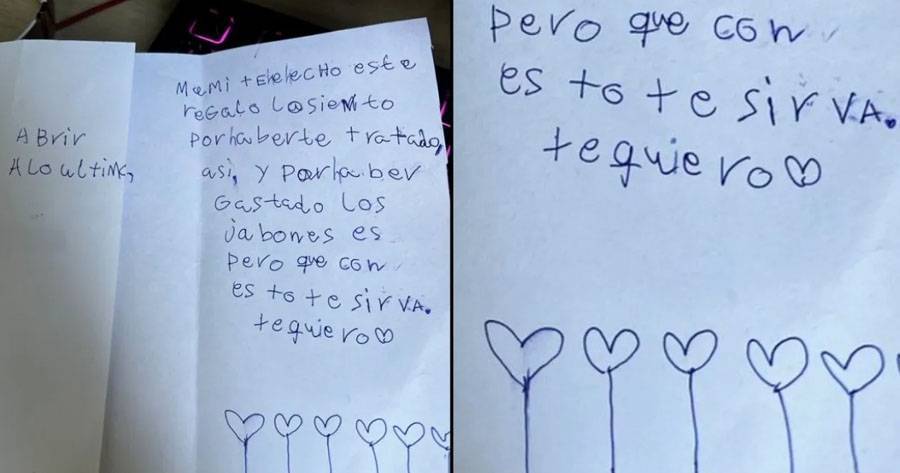 ABrir
ALO ultiMC,
MaMi tEheHeCHO este
reGalo Losiento
Porhaberte tratado,
asi, y Porhaber
Gastado Los
jabones es
Pero que con
es to te sirVA.
te quiero
Pero que con
es to te sirVA.
te quiero